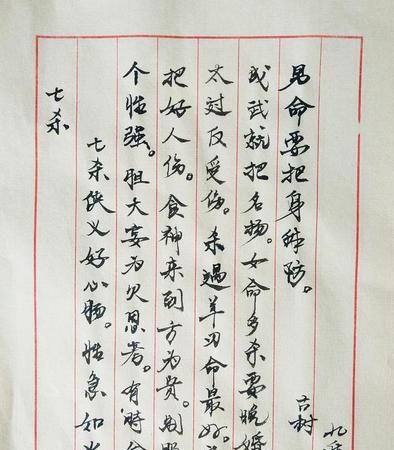 七杀
七杀侠义好心肠。性急如
个性强。胆大妄为欠思考。有时
把好人伤。食神来到方为贵。制
太过反受伤。杀遇羊刃命最好。
或武就把名扬。女命多杀要晚婚
见命要把身防。
古树
九